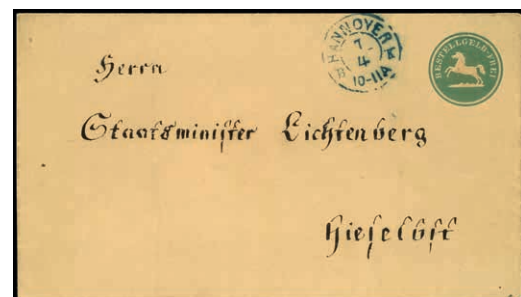 HANNOVER
7
4
10-11A
BESTELLGELD-FREI
Herrn
Staatsminister Lichtenberg
Hieselbst